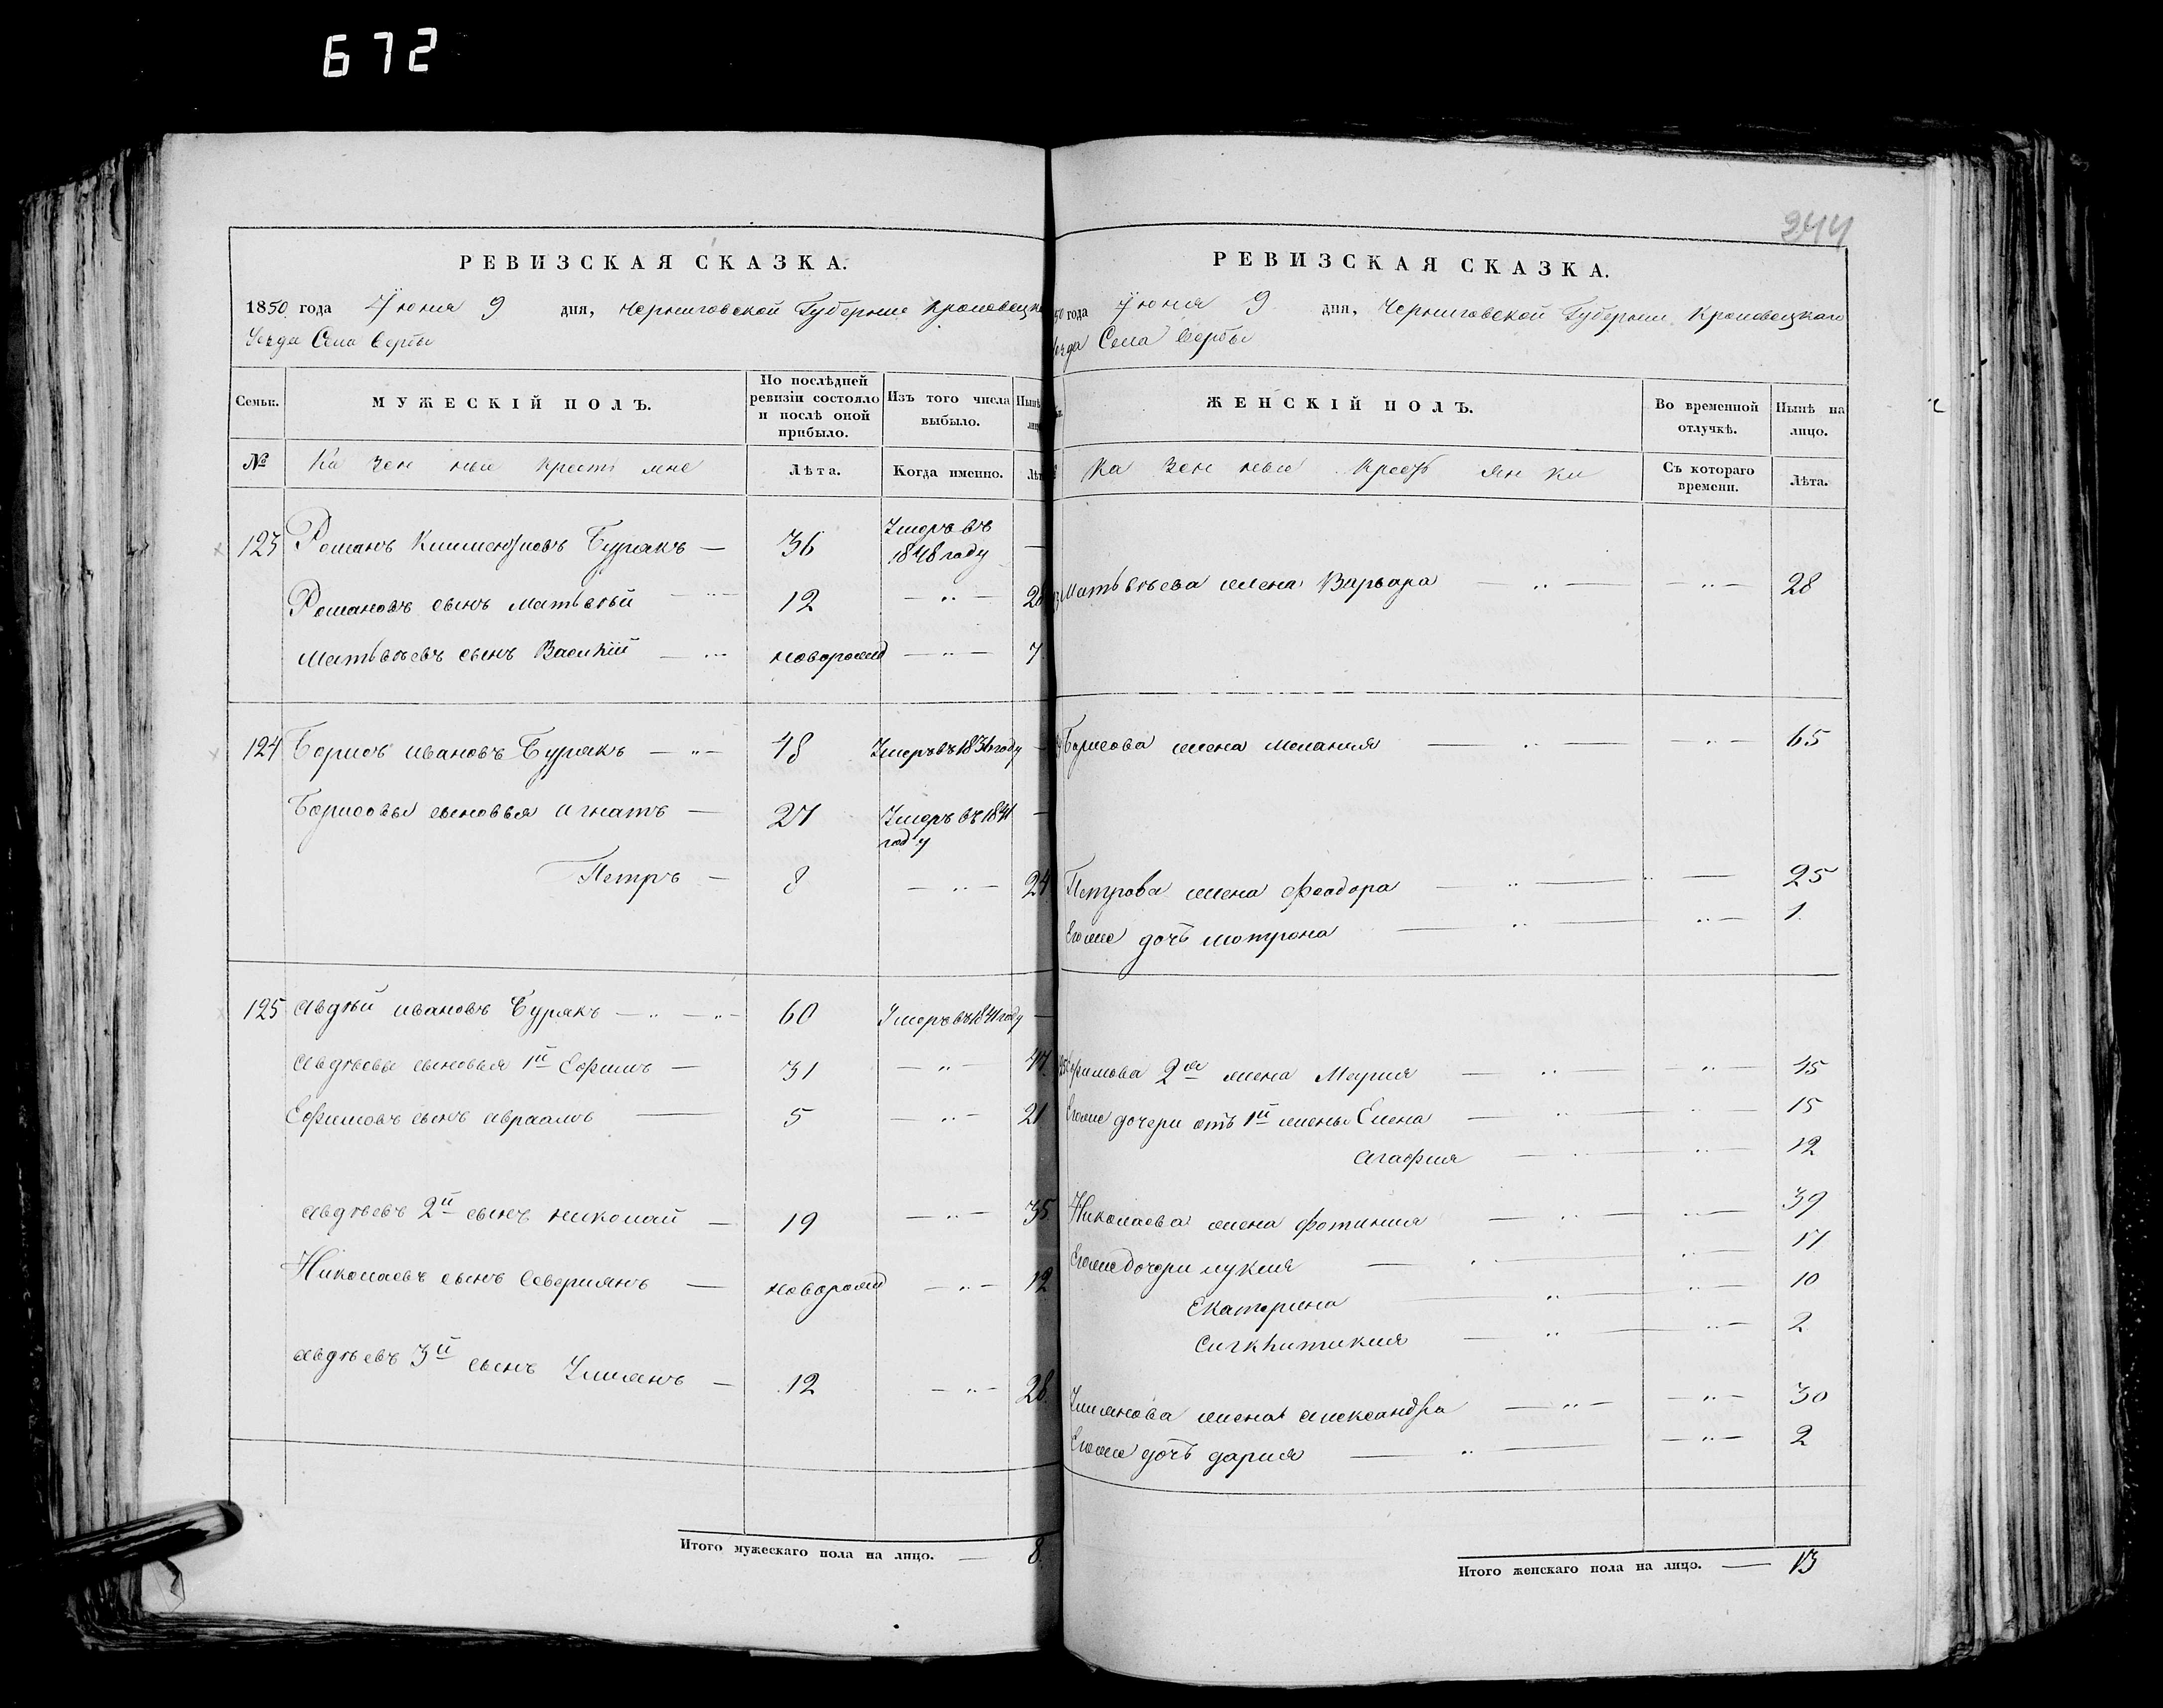 672
244
РЕВИЗСКАЯ СКАЗКА.
1850 года Июня 9 дня, Черниговской Губернии Кролевецка
Уезда Села Вербы
Семьи. МУЖЕСКІЙ ПОЛЪ. По послѣдней ревизіи состояло и послѣ оной прибыло. Изъ того числа выбыло. Нынѣ лицо
№ Ка зен ные крестьяне Лѣта. Когда именно. Лѣт
123 Романъ Климентовъ Бурякъ — 36 Умеръ въ 1848 году —
Романовъ сынъ Матьвѣй 12 — " — 28
Матьвѣевъ сынъ Василій новорожд — " — 7
124 Борисъ Ивановъ Бурякъ — " — 48 Умеръ въ 1836 году —
Борисовы сыновья Игнатъ — 27 Умеръ въ 1841 году —
Петръ — 8 — " — 24
125 Авдѣй Ивановъ Бурякъ — " — " — 60 Умеръ въ 1841 году —
Авдѣевы сыновья 1й Ефимъ — 31 — " — 47
Ефимовъ сынъ Авраамъ — 5 — " — 21
Авдѣевъ 2й сынъ Николай — 19 — " — 35
Николаевъ сынъ Северіянъ — новорожд — " — 12
Авдѣевъ 3й сынъ Ульянъ — 12 — " — 28.
Итого мужескаго пола на лицо. — 8.
РЕВИЗСКАЯ СКАЗКА.
50 года Июня 9 дня, Черниговской Губернии Кролевецкаго
езда Села Вербы
ЖЕНСКІЙ ПОЛЪ. Во временной отлучкѣ. Нынѣ на лицо.
Ка зен ные Кресть ян ки Съ котораго времени. Лѣта.
Матьвѣева жена Варвара — " — — " — 28
Борисова жена Меланія — " — — " — 65
Петрова жена Феодора — " — " — 25
Егоже дочь Мотрона — " — " — 1.
Ефимова 2я жена Марія — " — — " — 45
Егоже дочери отъ 1й жены Елена — " — " — 15
Агафія — " — " — 12
Николаева жена Фотинія — " — " — 39
Егоже дочери Лукія — " — " — 17
Екатерина — " — " — 10
Сигклитикія — " — " — 2
Ульянова жена Александра — " — — " — 30
Егоже дочь Дарія — " — — " — 2
Итого женскаго пола на лицо. — 13